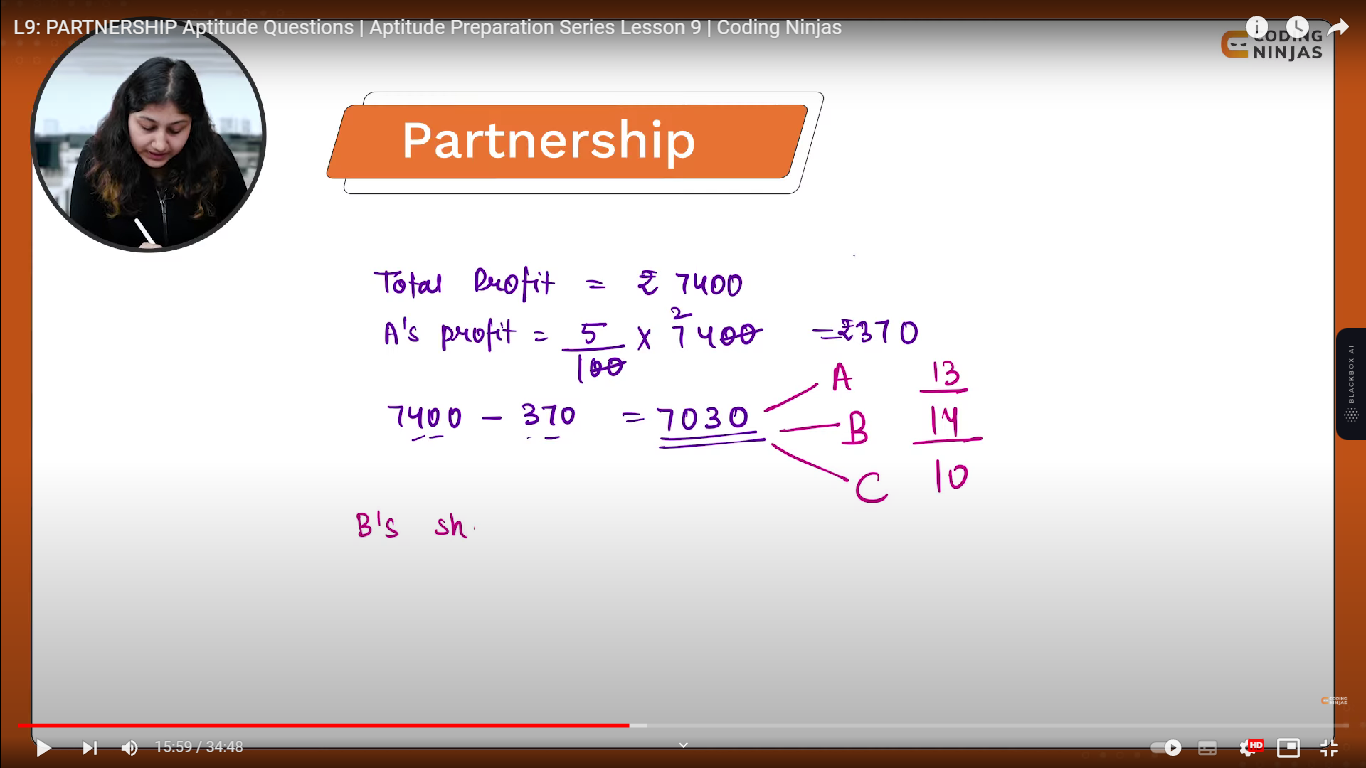 L9: PARTNERSHIP Aptitude Questions | Aptitude Preparation Series Lesson 9 | Coding Ninjas
CODING
NINJAS
Partnership
Total Profit = ₹ 7400
2
A's profit = 5/100 x 7400 = ₹370
A 13
7400 - 370 = 7030 B 14
C 10
B's sh
BLACKBOX AI
CODING
NINJAS
15:59 / 34:48
HD